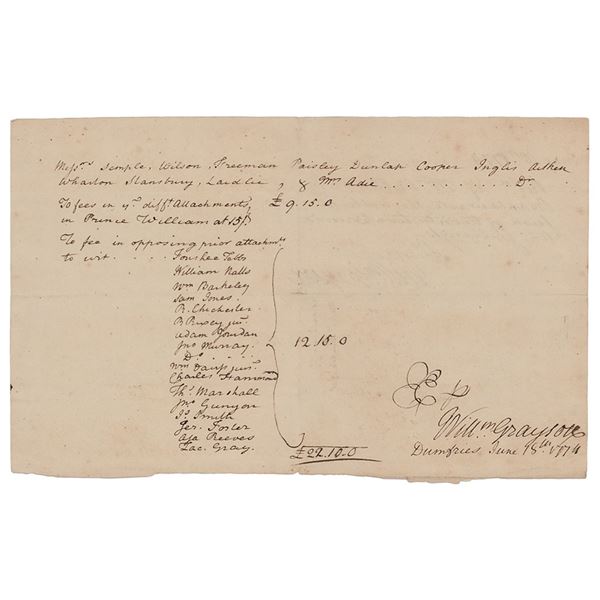 Messrs. Semple, Wilson, Freeman Paisley Dunlap Cooper Inglis Aitken
Wharton Stansbury, Laidlie, & Mrs Adie . . . . . . . . . . . Dr.
To fees in yr. difft. Attachments, £ 9. 15. 0
in Prince William at 15/.
To fee in opposing prior attachmts
to wit . . . . Foushee Tebbs
William Nalls
Wm Barkeley
Sam Jones.
R. Chichester
junr.
Adam Jourdan
Jno Murray. 12. 15. 0
Do. . . . .
Wm junr.
Charles Hammond
Ths. Marshall
Jno Gunyon
Js. Smith
Jer. Foster
Asa Reeves
Zac. Gray.
£22. 10. 0
E
Willm Grayson
Dumfries June 18th 1774